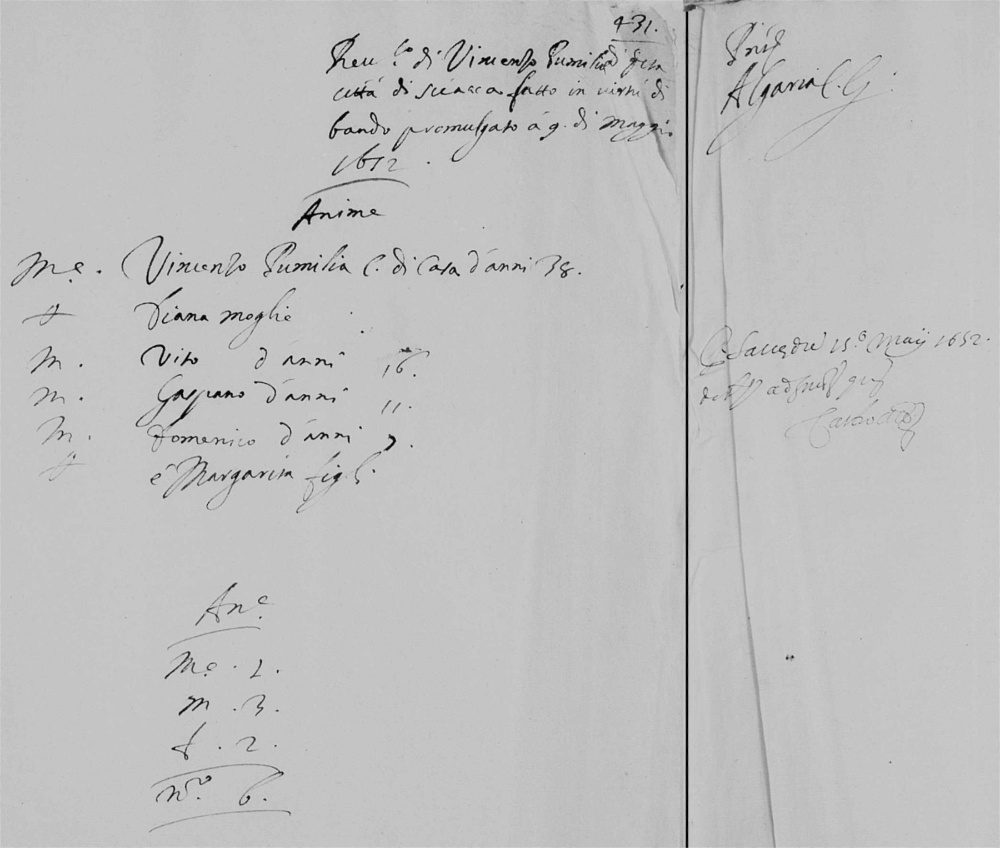 431.
Reu.lo di Vincenso Pumilia di questa
città di sciacca fatto in virtù di
bando promulgato à 9. di Maggio
1652.
Anime
Me. Vincenso Pumilia C. di Casa d'anni 38.
f Diana moglie
M. Vito d'anni 16.
M. Gaspano d'anni 11.
M. Domenico d'anni 7.
f è Margarita figli.
An.e
Me. 1.
M. 3.
f. 2.
N.ro 6.
Algaria C. G.
Sacca die 15.o Maij 1652.